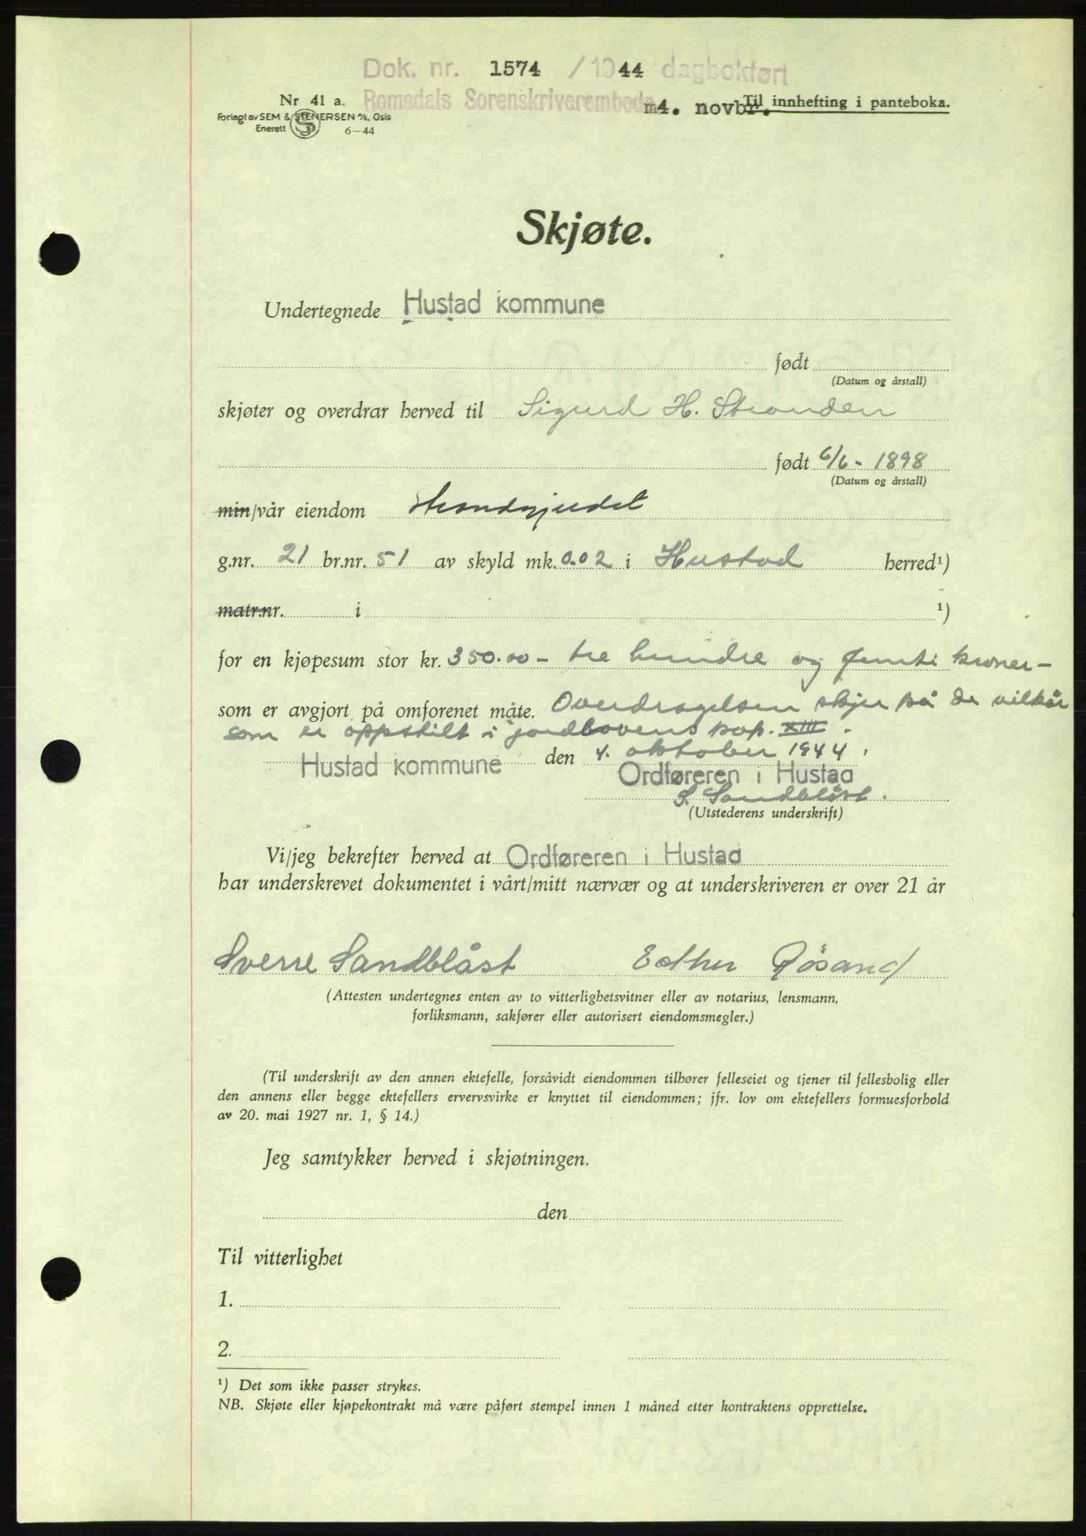 Dok. nr. 1574 / 1944 dagbokført
Nr 41 a. Romsdals Sorenskriverembede m4. novbr. Til innhefting i panteboka.
Forlagt av SEM & STENERSEN A/S, Oslo
Enerett S 6—44
Skjøte.
Undertegnede Hustad kommune
født
(Datum og årstall)
skjøter og overdrar herved til Sigurd H. Stranden
født 6/6- 1898
(Datum og årstall)
min/vår eiendom
g.nr. 21 br.nr. 51 av skyld mk. 0.02 i Hustad herred¹)
matr.nr. i ¹)
for en kjøpesum stor kr. 350.00 - tre hundre og femti kroner-
som er avgjort på omforenet måte. Overdragelsen skjer på de vilkår
som er oppstilt i jordlovens kap. XIII.
Hustad kommune den 4. oktober 1944.
Ordføreren i Hustad
S. Sandblåst.
(Utstederens underskrift)
Vi/jeg bekrefter herved at Ordføreren i Hustad
har underskrevet dokumentet i vårt/mitt nærvær og at underskriveren er over 21 år
Sverre Sandblåst Esther Røsand
(Attesten undertegnes enten av to vitterlighetsvitner eller av notarius, lensmann,
forliksmann, sakfører eller autorisert eiendomsmegler.)
(Til underskrift av den annen ektefelle, forsåvidt eiendommen tilhører felleseiet og tjener til fellesbolig eller
den annens eller begge ektefellers ervervsvirke er knyttet til eiendommen; jfr. lov om ektefellers formuesforhold
av 20. mai 1927 nr. 1, § 14.)
Jeg samtykker herved i skjøtningen.
den
Til vitterlighet
1.
2.
¹) Det som ikke passer strykes.
NB. Skjøte eller kjøpekontrakt må være påført stempel innen 1 måned etter kontraktens opprettelse.